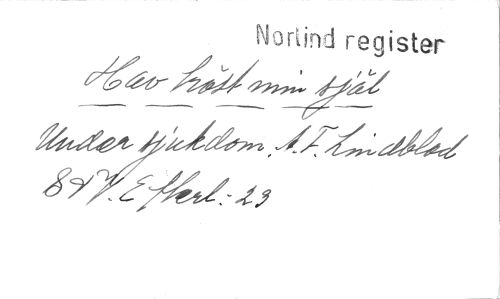 Norlind register
Hav tröst min själ
Under sjukdom. A. F. Lindblad
S & V. Efterl: 23